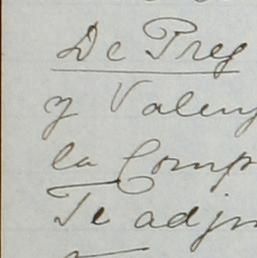 De Preg
y Valen
la Comp
Te adjn